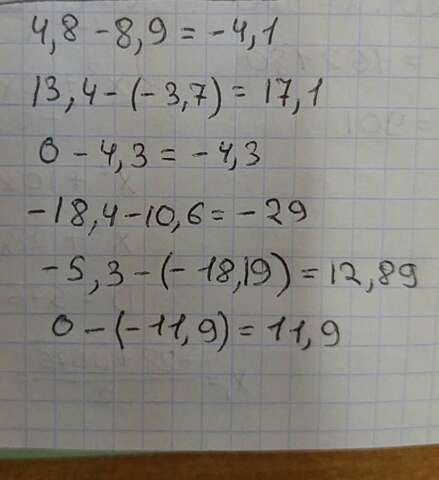 4,8 - 8,9 = -4,1
13,4 - (-3,7) = 17,1
0 - 4,3 = -4,3
-18,4 - 10,6 = -29
-5,3 - (-18,19) = 12,89
0 - (-11,9) = 11,9